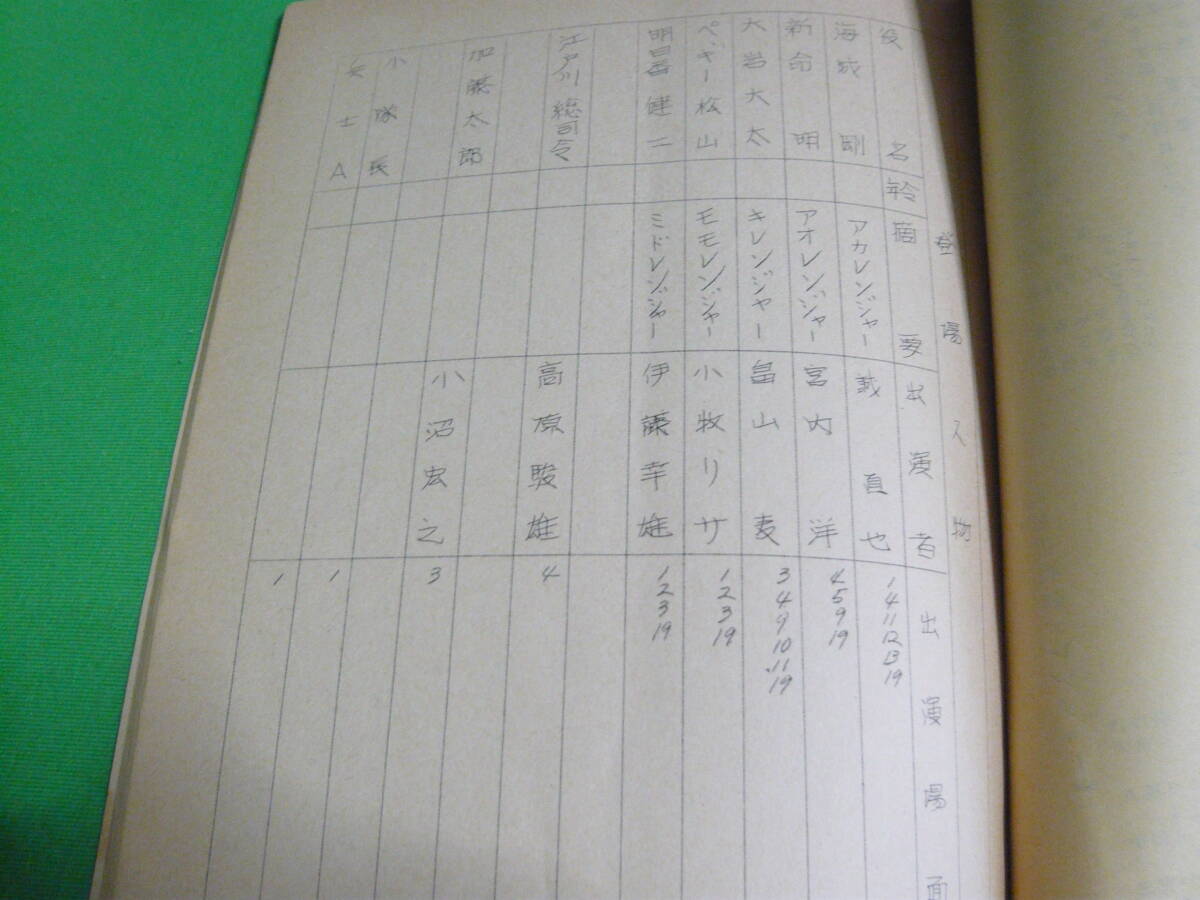 登場人物
役名 年令 摘要 出演者 出演場面
海城剛 アカレンジャー 誠直也 1 4 11 12 13 19
新命明 アオレンジャー 宮内洋 4 5 9 19
大岩大太 キレンジャー 畠山麦 3 4 9 10 11 19
ペギー松山 モモレンジャー 小牧リサ 1 2 3 19
明日香健二 ミドレンジャー 伊藤幸雄 1 2 3 19
江戸川総司令 高原駿雄 4
加藤太郎 小沼宏之 3
小隊長 1
兵士A 1